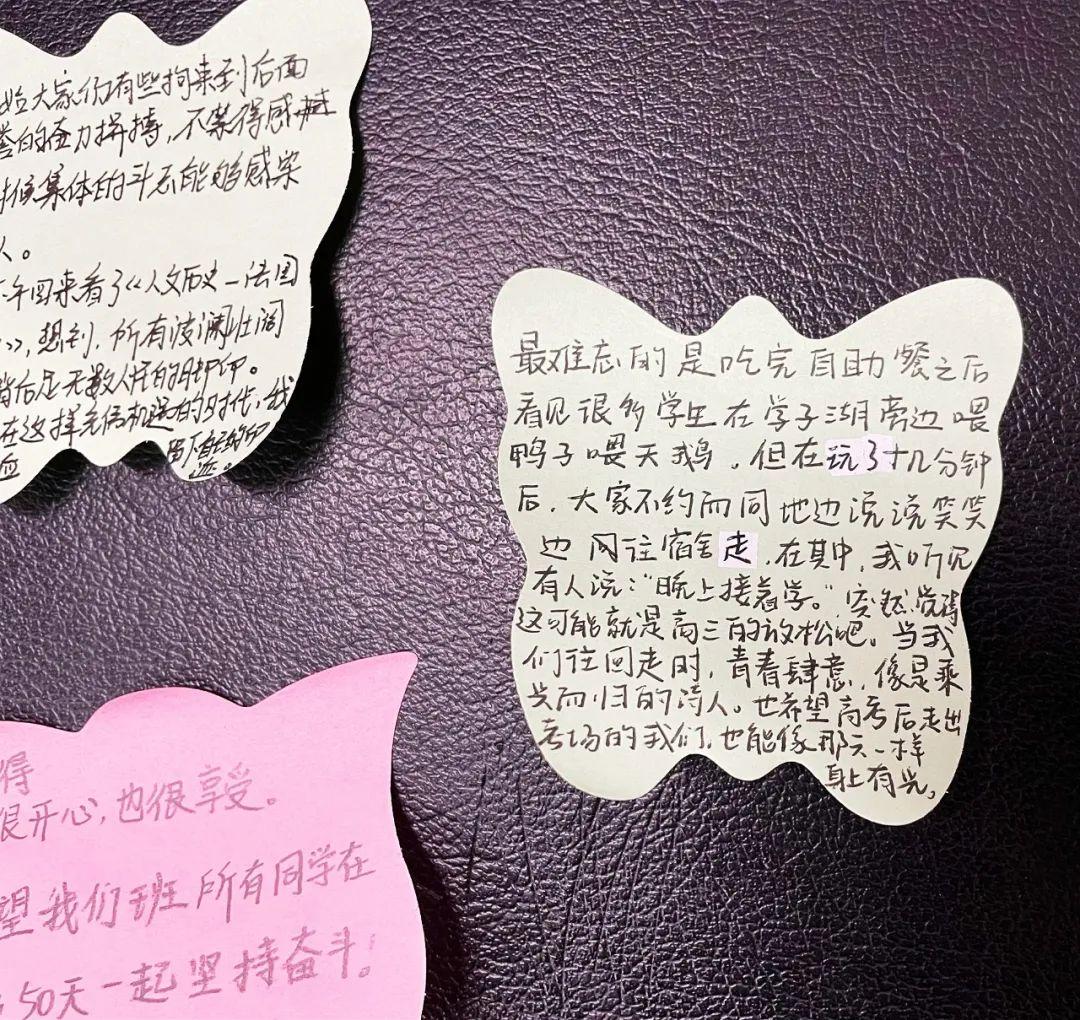 大家仍有些拘束到后面
誉的奋力拼搏，不禁得感慨
时候集体的斗志能够感染
人。
午回来看了《人文历史一法国
》，想到，所有波澜壮阔
背后是无数人 的脚印。
在这样充满机遇的时代，我
留下自己的印
迹。
最难忘的是吃完自助餐之后
看见很多学生在学子湖旁边喂
鸭子喂天鹅，但在玩了十几分钟
后，大家不约而同地边说说笑笑
边 网往宿舍走，在其中，我听见
有人说："晚上接着学。"突然觉得
这可能就是高三的放松吧。当我
们往回走时，青春肆意，像是乘
兴而归的诗人。也希望高考后走出
考场的我们，也能像那天一样
身上有光。
得
很开心，也很享受。
望我们班所有同学在
50天一起坚持奋斗！